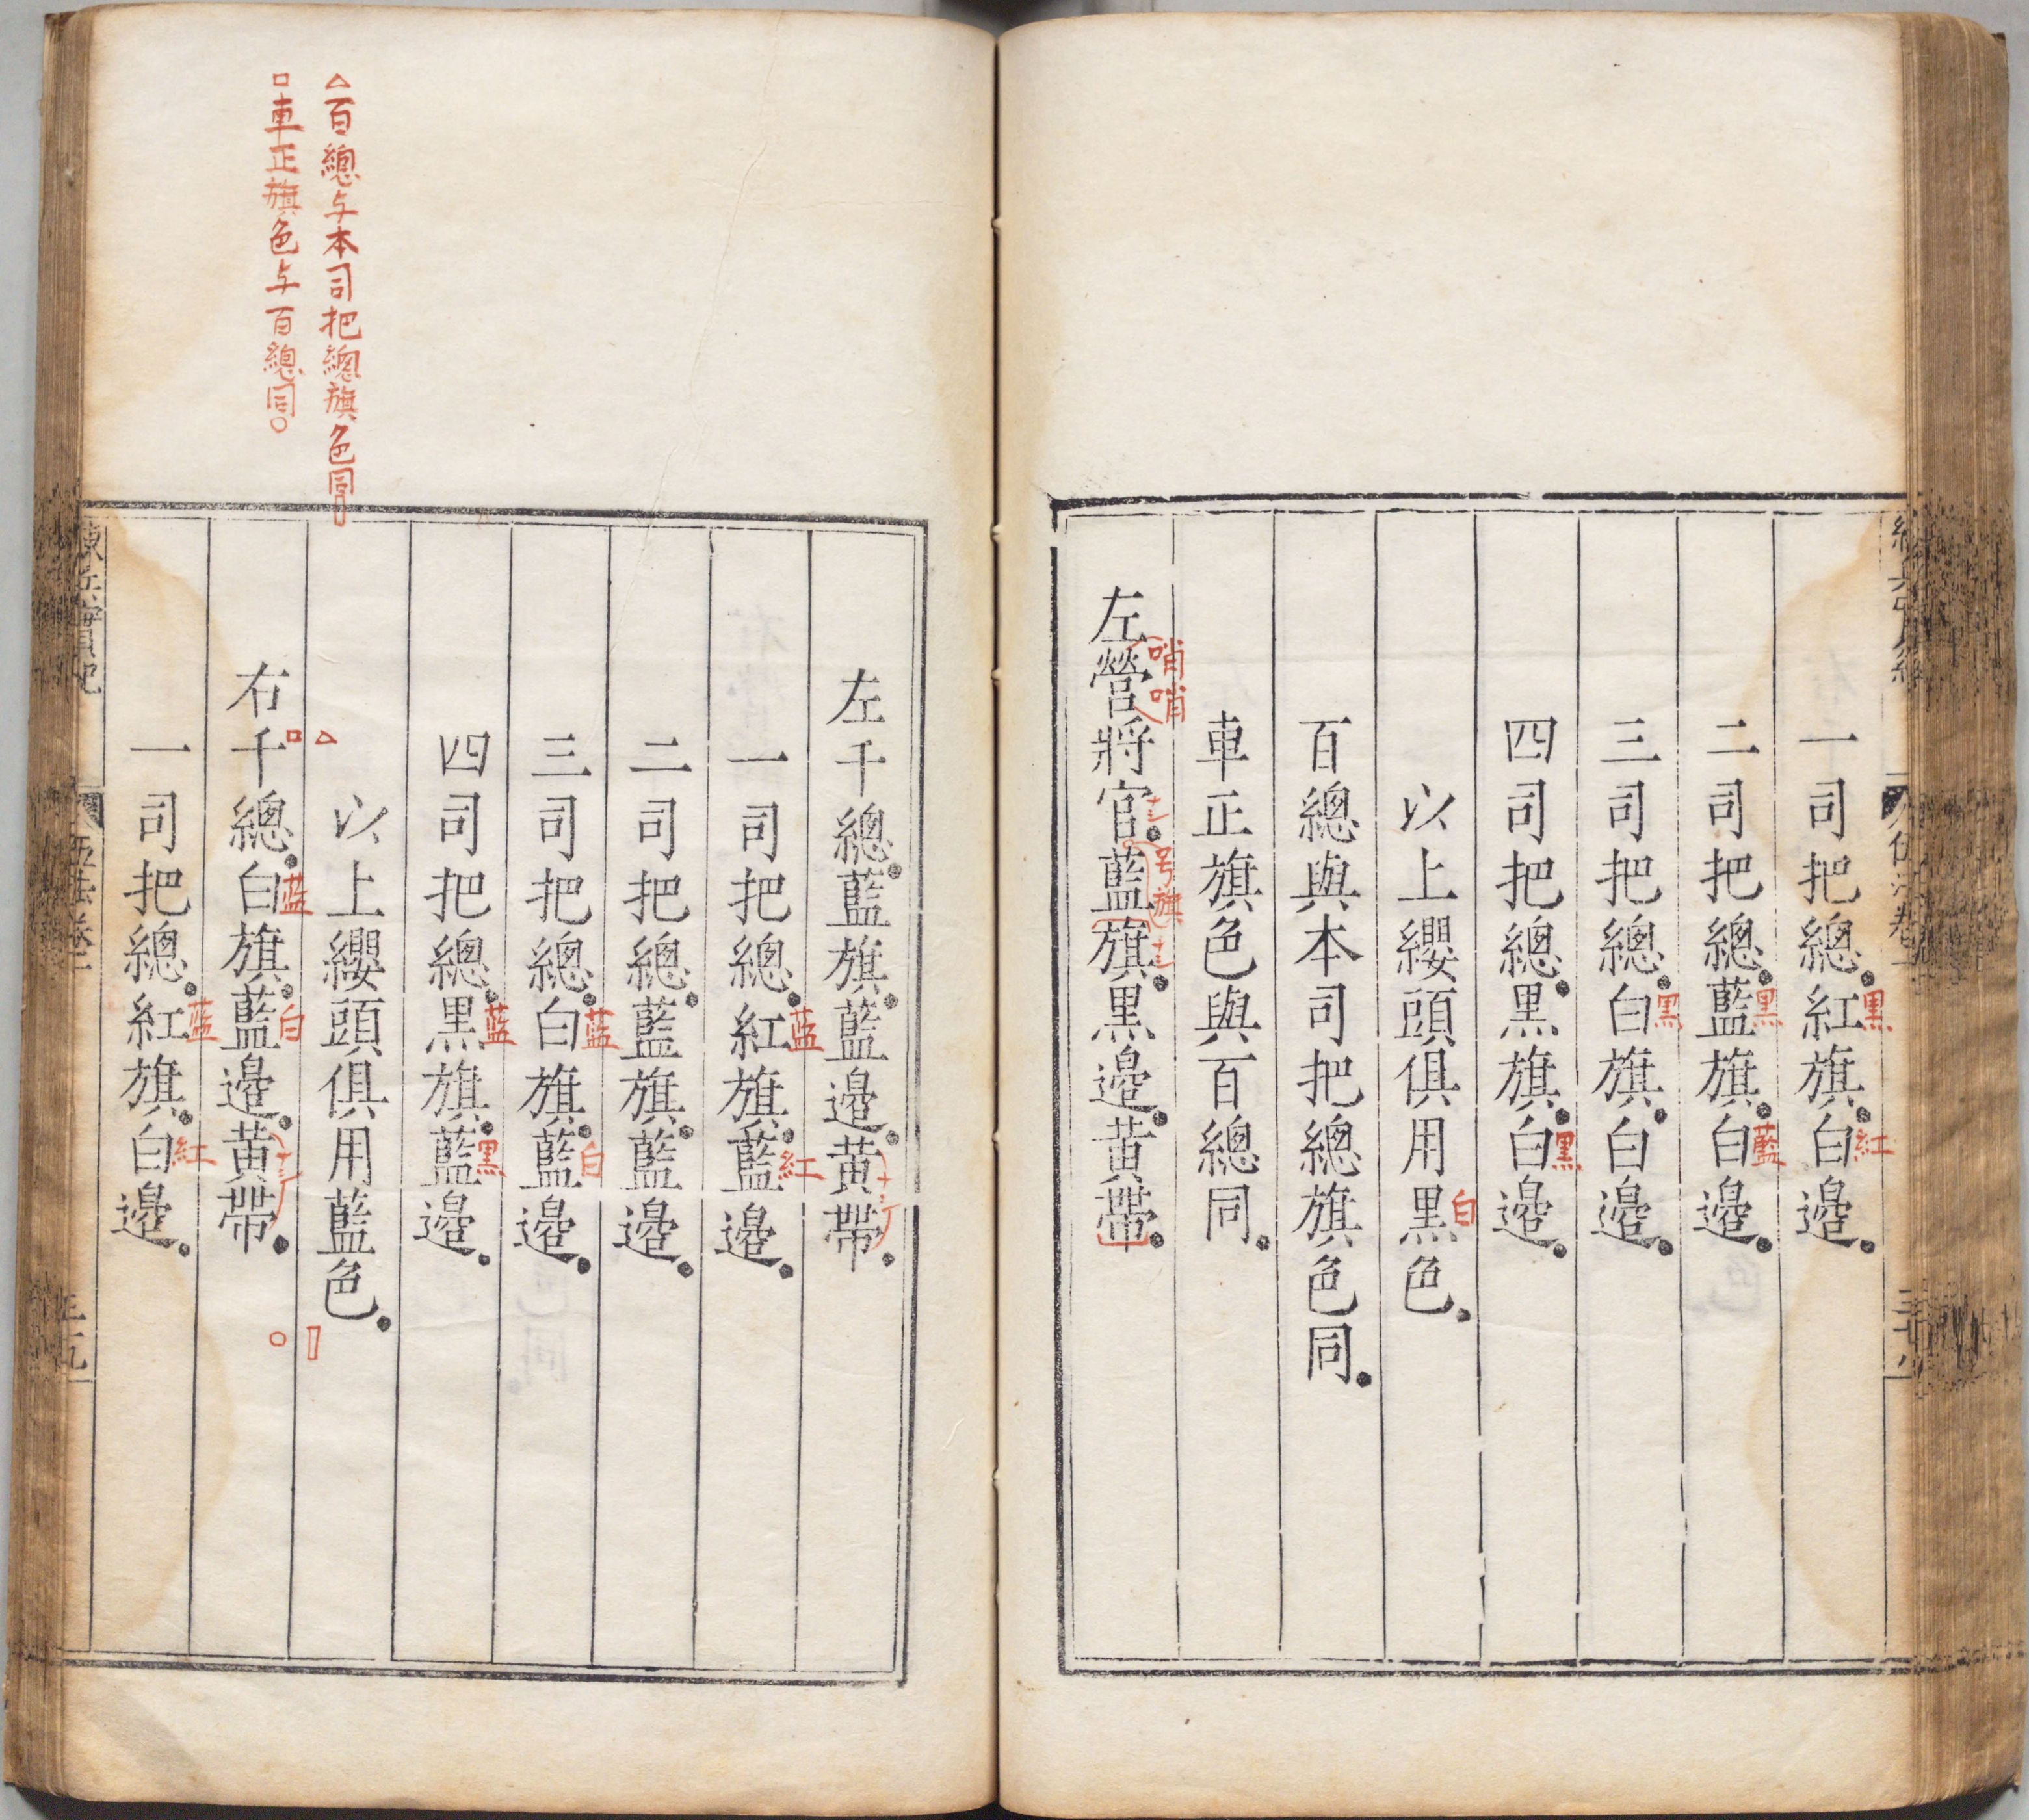 一司把總紅旗白邊
黑
紅
二司把總藍旗白邊
黑
藍
三司把總白旗白邊
黑
四司把總黑旗白邊
黑
以上纓頭俱用黑色
白
百總與本司把總旗色同
車正旗色與百總同
左營將官藍旗黑邊黃帶
哨哨
号旗
△百總与本司把總旗色同
□車正旗色与百總同○
左千總藍旗藍邊黃帶
一司把總紅旗藍邊
蓝
紅
二司把總藍旗藍邊
三司把總白旗藍邊
蓝
白
四司把總黑旗藍邊
蓝
黑
以上纓頭俱用藍色
右千總白旗藍邊黃帶
蓝
白
一司把總紅旗白邊
蓝
紅
練兵實紀